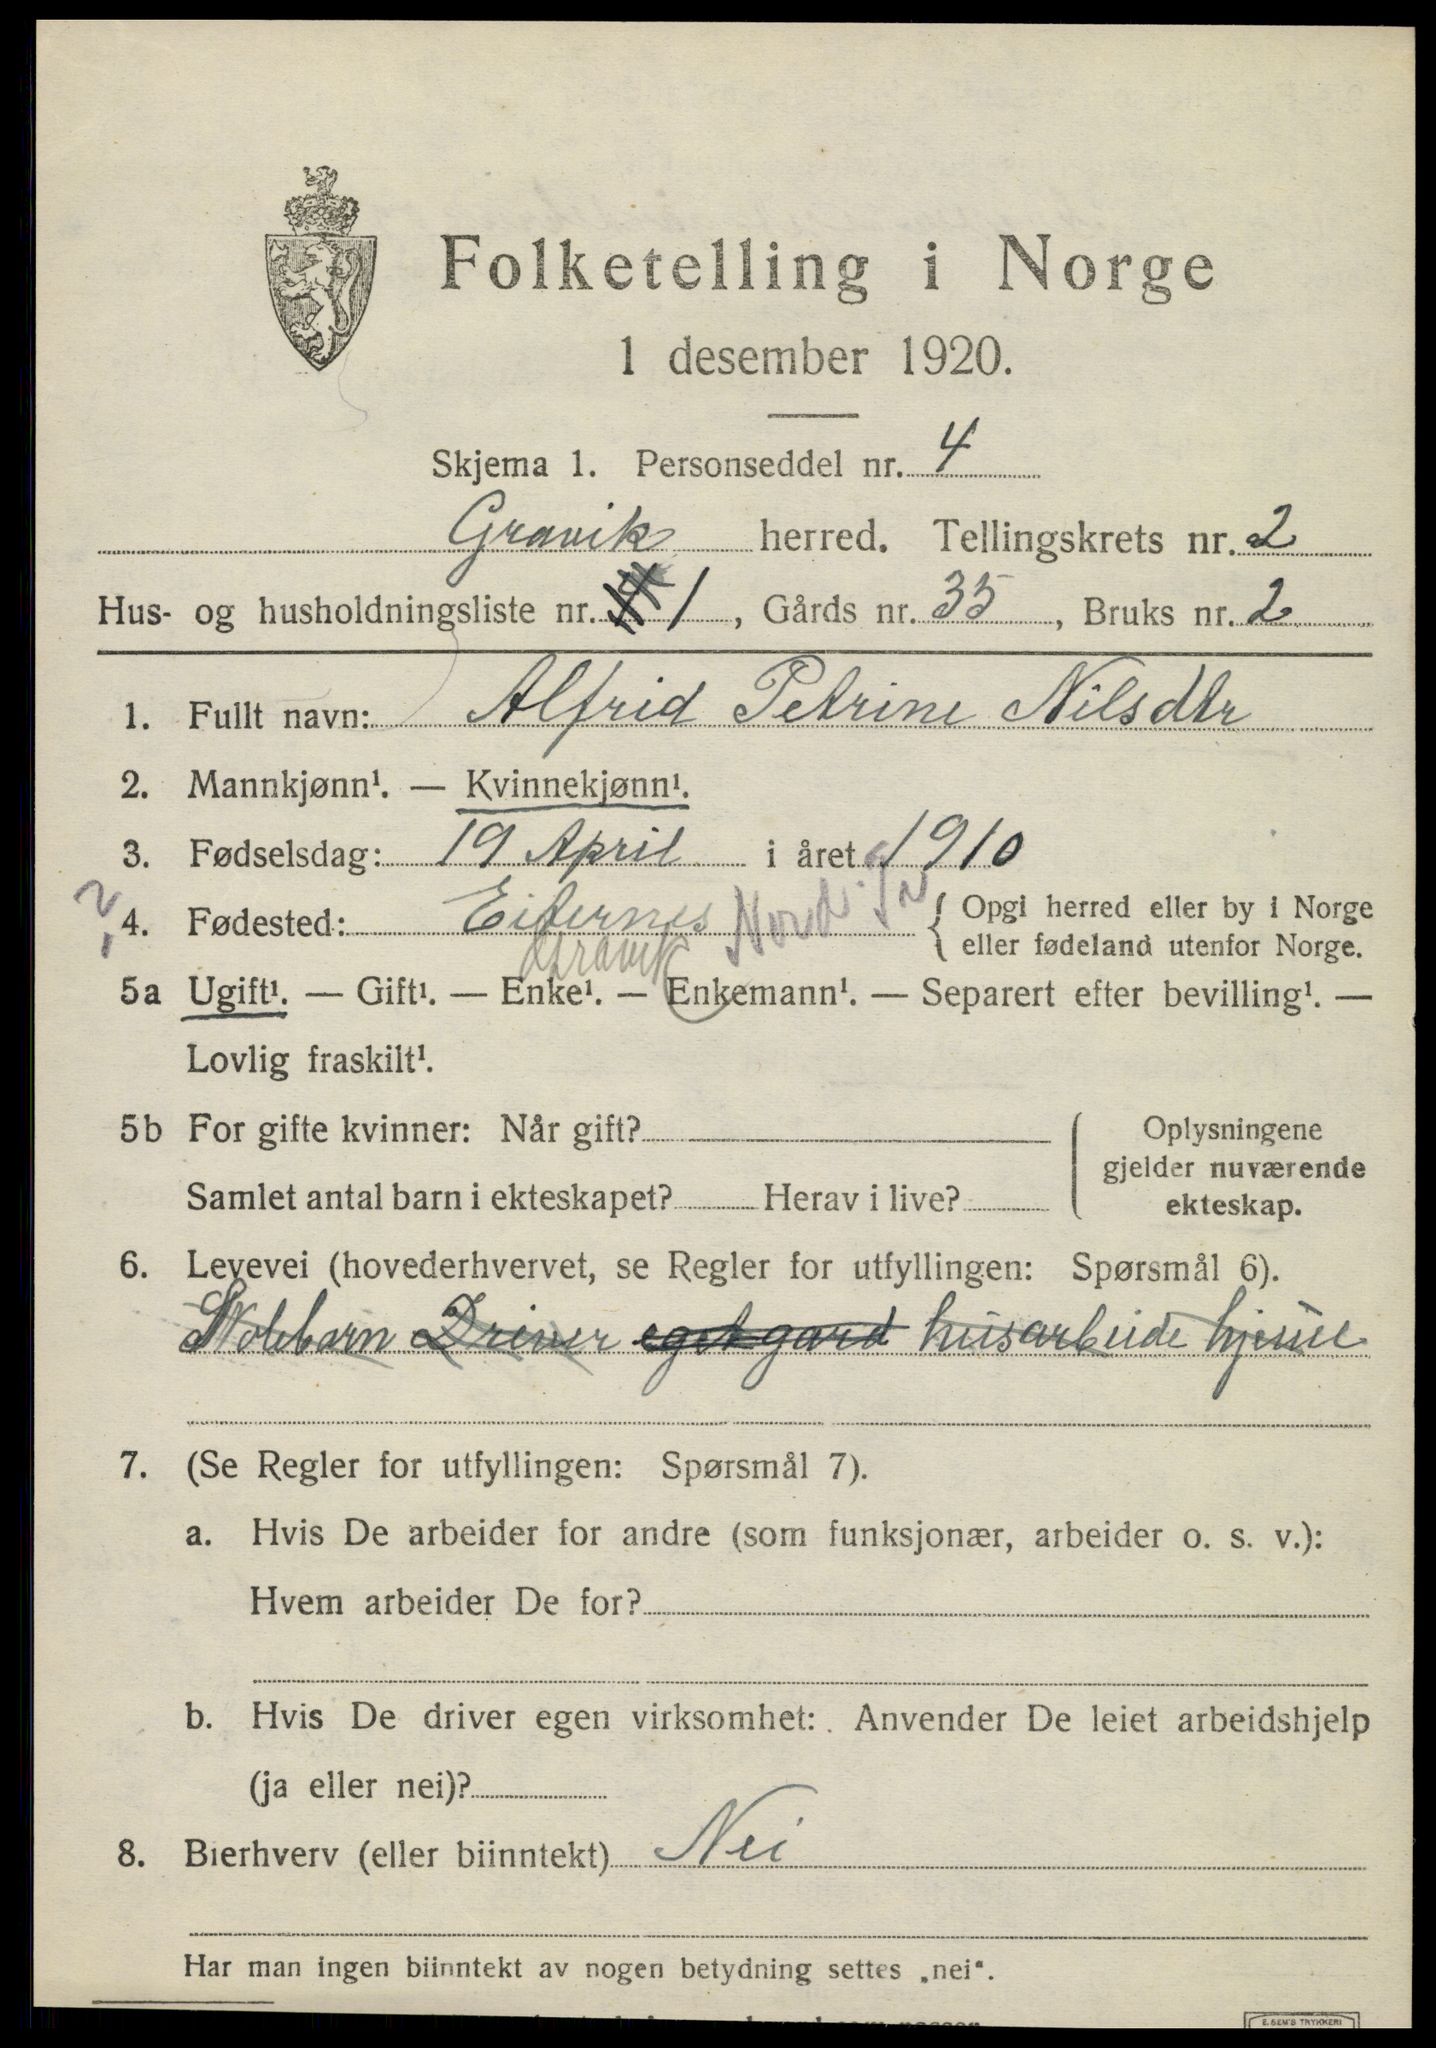 Folketelling i Norge
1 desember 1920.
Skjema 1. Personseddel nr. 4
Gravik herred. Tellingskrets nr. 2
Hus- og husholdningsliste nr. 1, Gårds nr. 35, Bruks nr. 2
1. Fullt navn: Alfrid Petrine Nilsdtr
2. Mannkjønn¹. — Kvinnekjønn¹.
3. Fødselsdag: 19 April i året 1910
? 4. Fødested: Eiternes { Opgi herred eller by i Norge
eller fødeland utenfor Norge.
Gravik
5a Ugift¹. — Gift¹. — Enke¹. — Enkemann¹. — Separert efter bevilling¹. —
Lovlig fraskilt¹.
5b For gifte kvinner: Når gift?
Samlet antal barn i ekteskapet? Herav i live?
Oplysningene
gjelder nuværende
ekteskap.
6. Levevei (hovederhvervet, se Regler for utfyllingen: Spørsmål 6).
Skolebarn Driver eget gard husarbeide hjeme
7. (Se Regler for utfyllingen: Spørsmål 7).
a. Hvis De arbeider for andre (som funksjonær, arbeider o. s. v.):
Hvem arbeider De for?
b. Hvis De driver egen virksomhet: Anvender De leiet arbeidshjelp
(ja eller nei)?
8. Bierhverv (eller biinntekt) Nei
Har man ingen biinntekt av nogen betydning settes „nei“.
E. SEM'S TRYKKERI